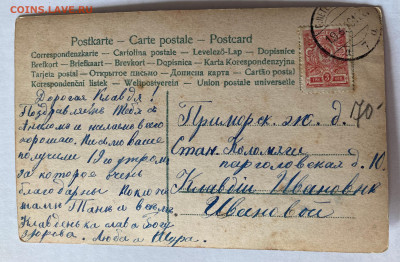 COINS.LAVE.RU
Postkarte – Carte postale – Postcard
Correspondenzkarte – Cartolina postale – Levelező-Lap – Dopisnice
Brefkort – Briefkaart – Brevkort – Dopisnica – Karta Korespondencyjna
Tarjeta postal – Открытое письмо – Дописна карта – Cartão postal
Korespondenční listek – Weltpostverein – Union postale universelle
Дорогая Клавдя!
Поздравляемъ Тебя съ
Ангеломъ и желаем всего
хорошаго. Письмо ваше
получили 19го утромъ
за которое очень
благодарны
мами Таньи и всем.
Клавденька слава Богу
здорова. Люба и Шура.
Приморск. ж. д.
Стан. Коломяги
парголовская д. 10
Клавдіи Ивановнѣ
Ивановой
70